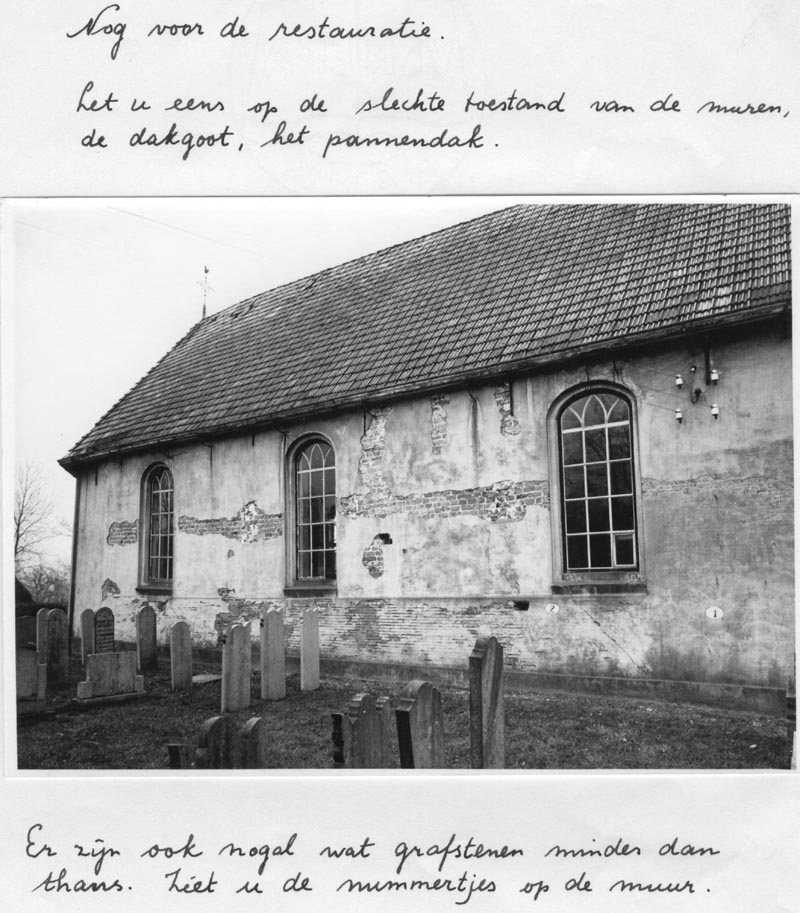 Nog voor de restauratie.
Let u eens op de slechte toestand van de muren,
de dakgoot, het pannendak.
2
1
Er zijn ook nogal wat grafstenen minder dan
thans. Ziet u de nummertjes op de muur.